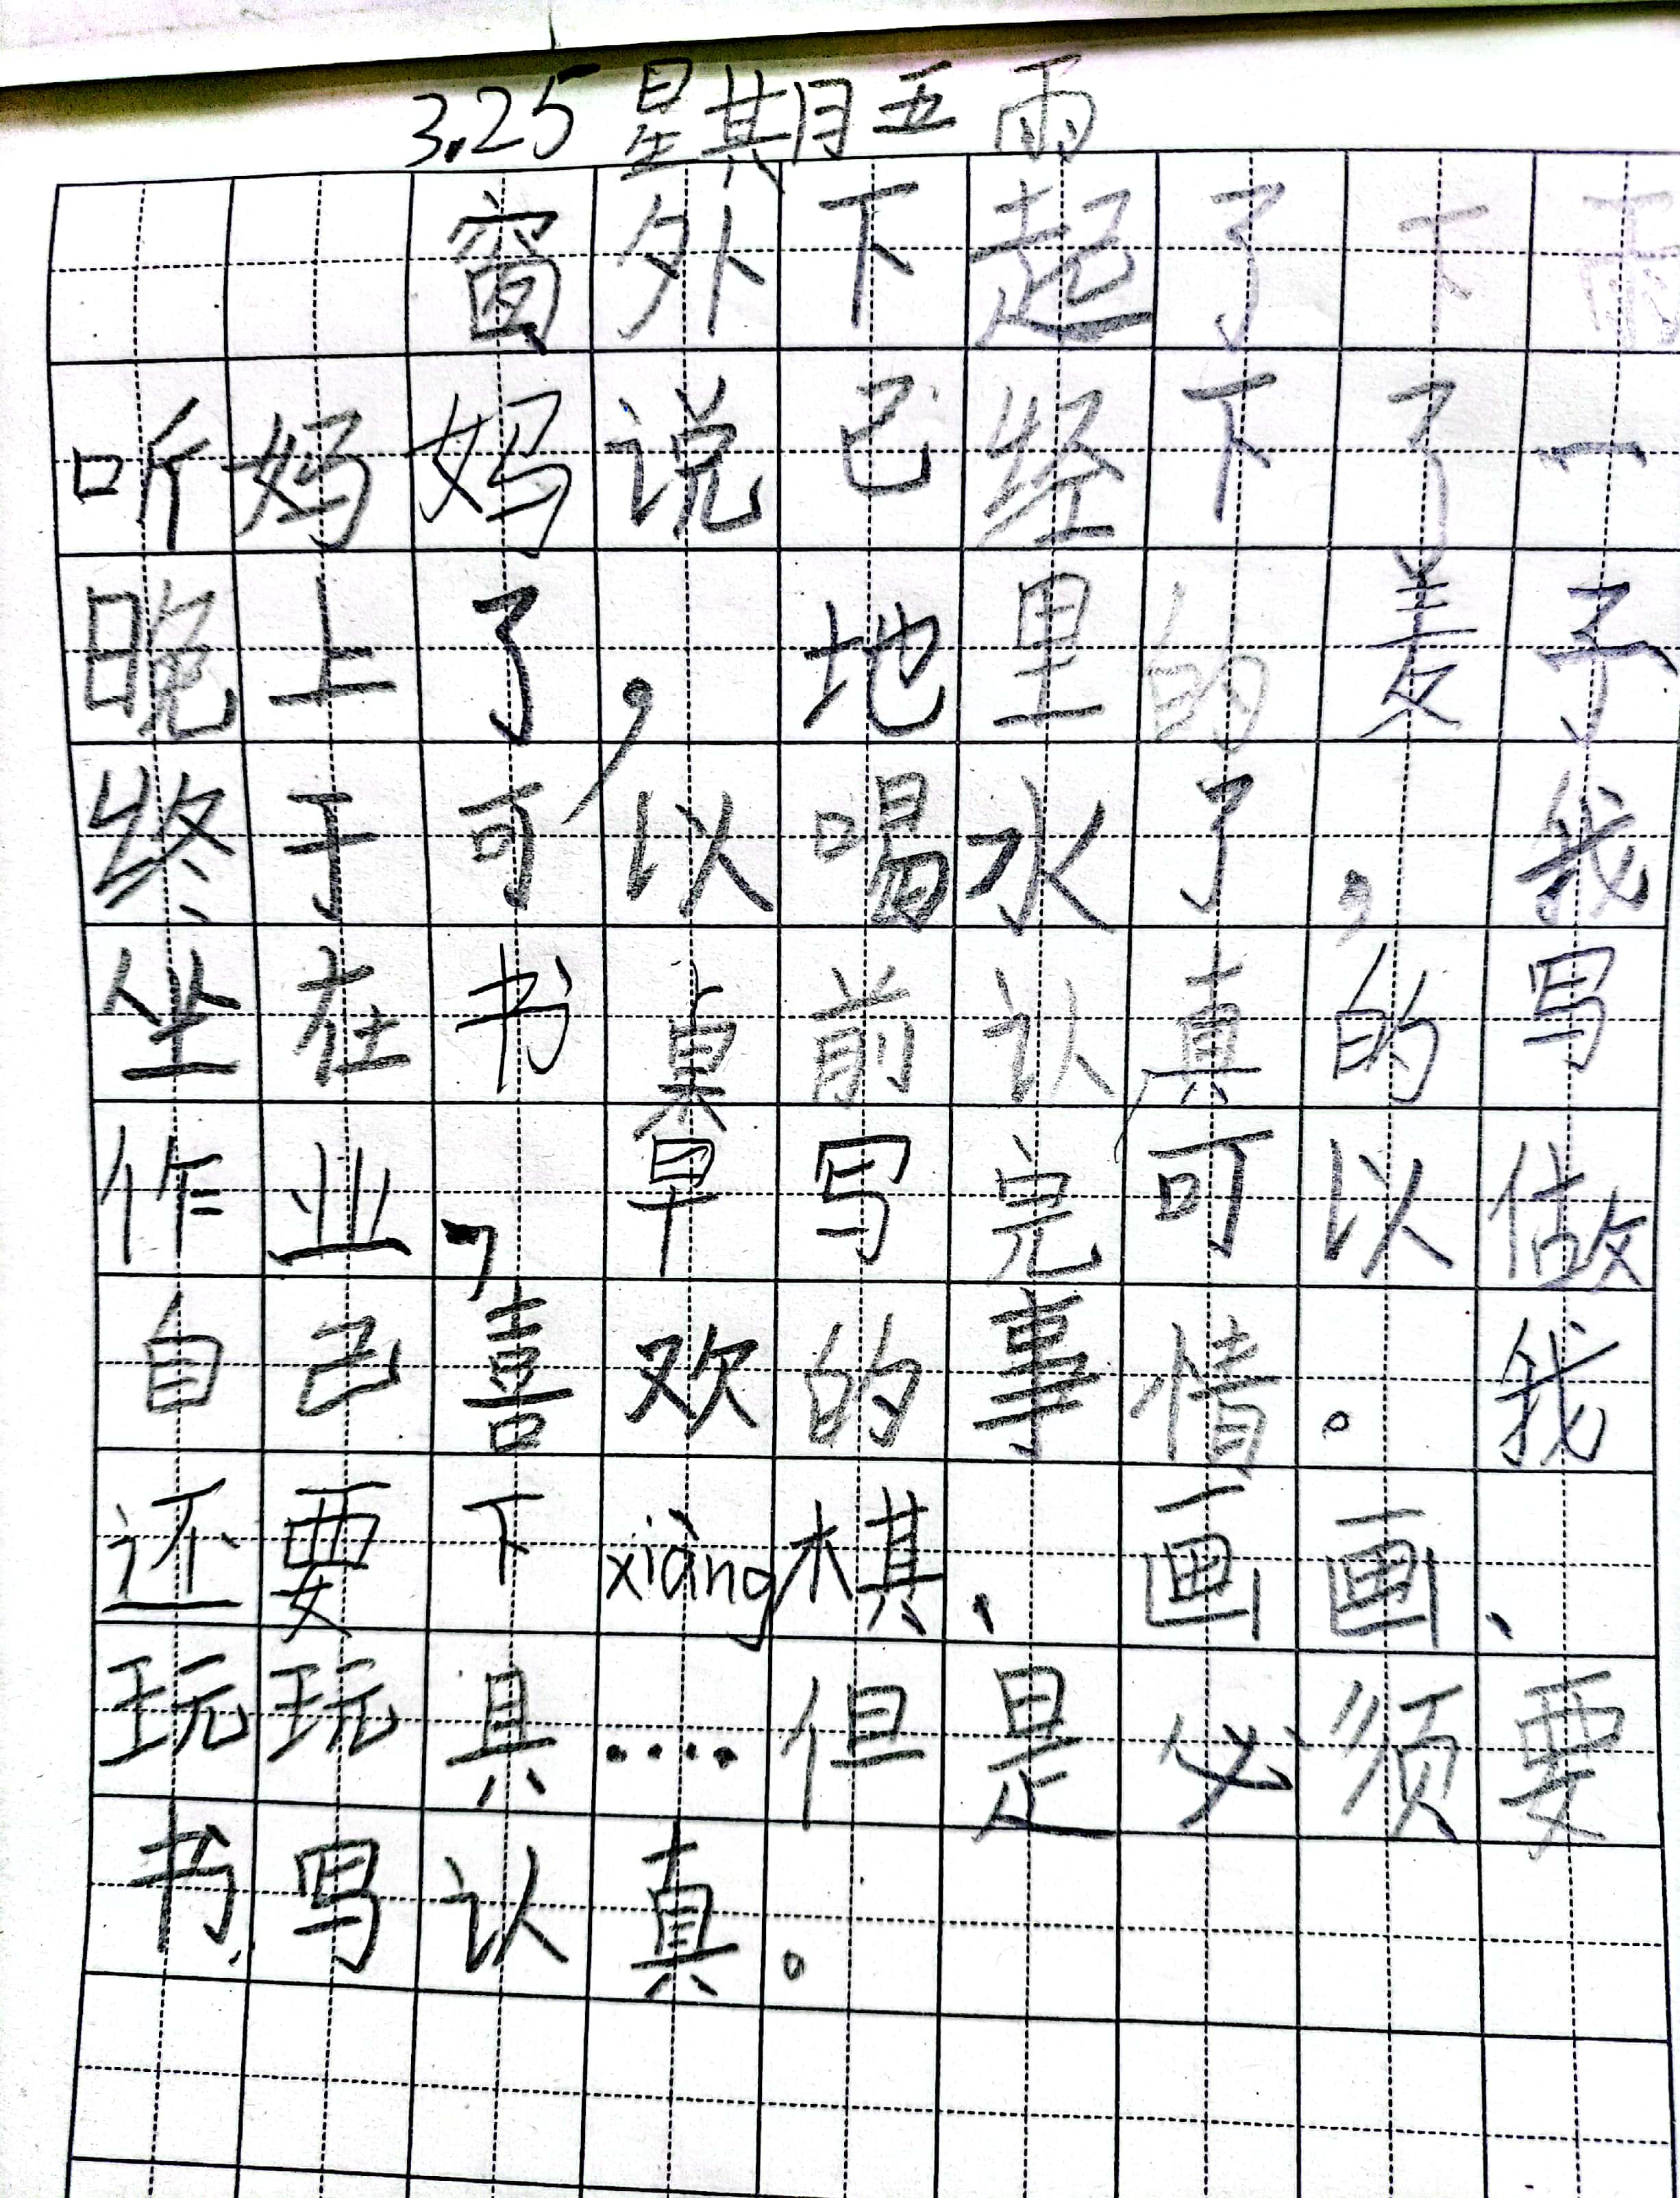 3.25 星期五 雨
窗外下起了下雨
听妈妈说已经下了一
晚上了，地里的麦子
终于可以喝水了，我
坐在书桌前认真的写
作业，早写完可以做
自己喜欢的事情。我
还要下xiàng棋、画画、
玩玩具····但是必须要
书写认真。